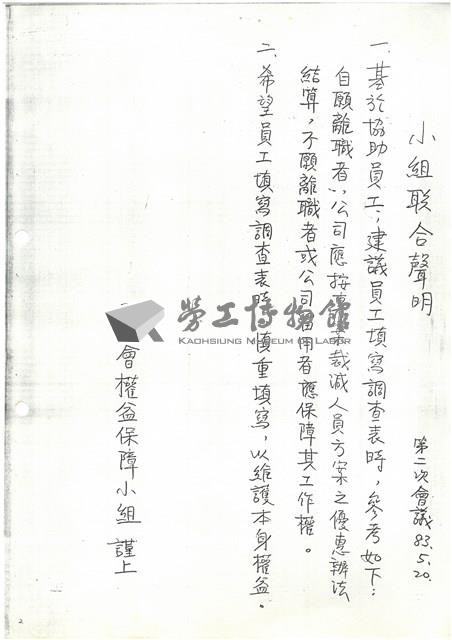 小組联合聲明
第二次會議 83.5.20.
一、基於協助員工，建議員工填寫調查表時，參考如下：
自願離職者，公司應按專案裁減人員方案之優惠辦法
結算，不願離職者或公司留用者應保障其工作權。
二、希望員工填寫調查表時慎重填寫，以維護本身權益。
會權益保障小組 謹上
勞工博物館
KAOHSIUNG MUSEUM OF LABOR
2